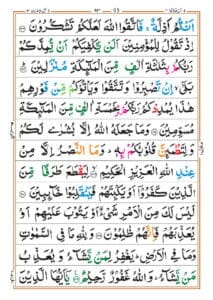 اَنْتُمْ اَذِلَّةٌ ۚ فَاتَّقُوا اللّٰهَ لَعَلَّكُمْ تَشْكُرُوْنَ
اِذْ تَقُوْلُ لِلْمُؤْمِنِيْنَ اَلَنْ يَّكْفِيَكُمْ اَنْ يُّمِدَّكُمْ
رَبُّكُمْ بِثَلٰثَةِ اٰلٰفٍ مِّنَ الْمَلٰٓئِكَةِ مُنْزَلِيْنَ
بَلٰٓى ۙ اِنْ تَصْبِرُوْا وَتَتَّقُوْا وَيَاْتُوْكُمْ مِّنْ فَوْرِهِمْ
هٰذَا يُمْدِدْكُمْ رَبُّكُمْ بِخَمْسَةِ اٰلٰفٍ مِّنَ الْمَلٰٓئِكَةِ
مُسَوِّمِيْنَ وَمَا جَعَلَهُ اللّٰهُ اِلَّا بُشْرٰى لَكُمْ
وَلِتَطْمَئِنَّ قُلُوْبُكُمْ بِهٖ ۗ وَمَا النَّصْرُ اِلَّا مِنْ
عِنْدِ اللّٰهِ الْعَزِيْزِ الْحَكِيْمِ لِيَقْطَعَ طَرَفًا مِّنَ
الَّذِيْنَ كَفَرُوْٓا اَوْ يَكْبِتَهُمْ فَيَنْقَلِبُوْا خَآئِبِيْنَ
لَيْسَ لَكَ مِنَ الْاَمْرِ شَيْءٌ اَوْ يَتُوْبَ عَلَيْهِمْ اَوْ
يُعَذِّبَهُمْ فَاِنَّهُمْ ظٰلِمُوْنَ وَلِلّٰهِ مَا فِى السَّمٰوٰتِ
وَمَا فِى الْاَرْضِ ۗ يَغْفِرُ لِمَنْ يَّشَآءُ وَيُعَذِّبُ
مَنْ يَّشَآءُ ۗ وَاللّٰهُ غَفُوْرٌ رَّحِيْمٌ يٰٓاَيُّهَا الَّذِيْنَ